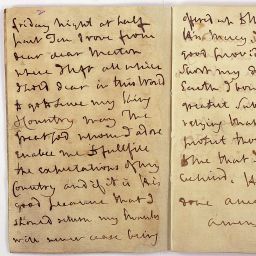 friday night at half
past Ten I drove from
dear dear Merton
where I left all which
I hold dear in this World
to go to serve my King
& Country may The
great God whom I adore
enable me to fullfill
the expectations of my
Country and if it is His
good pleasure that I
should return my thanks
will never cease being
offerd
His Mercy
good provid
short my d
Earth I bow
greatest sub
relying that
protect those
me that
behind. H
done amen
amen